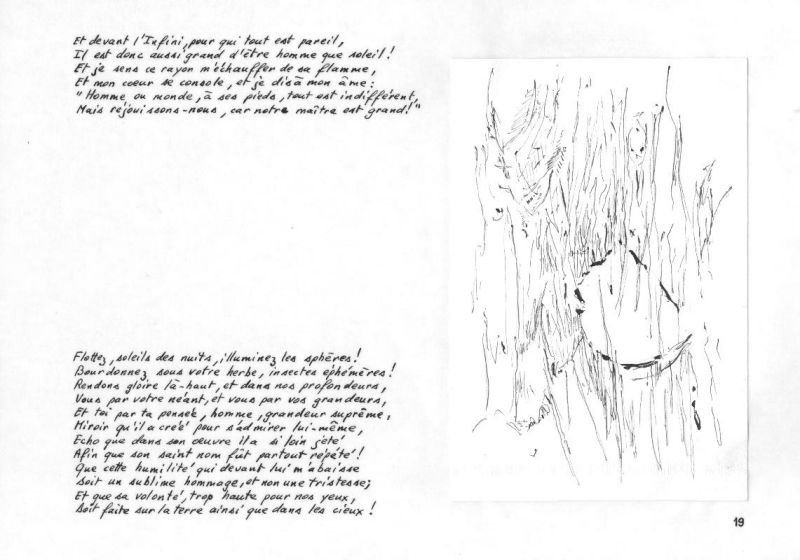 Et devant l'Infini, pour qui tout est pareil,
Il est donc aussi grand d'être homme que soleil!
Et je sens ce rayon m'échauffer de sa flamme,
Et mon cœur se console, et je dis à mon âme:
"Homme ou monde, à ses pieds, tout est indifférent,
Mais réjouissons-nous, car notre maître est grand!"
Flottez, soleils des nuits, illuminez les sphères!
Bourdonnez sous votre herbe, insectes éphémères!
Rendons gloire là-haut, et dans nos profondeurs,
Vous par votre néant, et vous par vos grandeurs,
Et toi par ta pensée, homme, grandeur suprême,
Miroir qu'il a créé pour s'admirer lui-même,
Echo que dans son œuvre il a si loin jeté
Afin que son saint nom fût partout répété!
Que cette humilité qui devant lui m'abaisse
Soit un sublime hommage, et non une tristesse;
Et que sa volonté, trop haute pour nos yeux,
Soit faite sur la terre ainsi que dans les cieux!
19